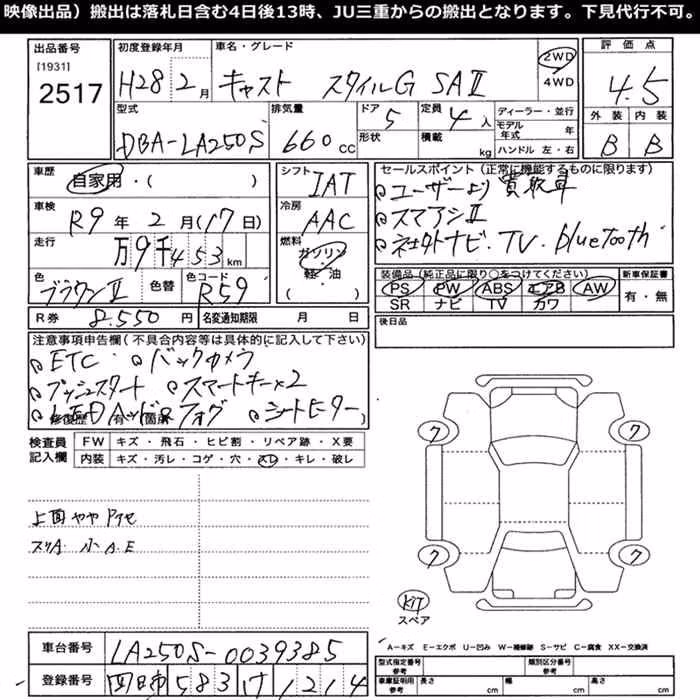 映像出品）搬出は落札日含む4日後13時、JU三重からの搬出となります。下見代行不可。
出品番号
[1931]
2517
初度登録年月
H28 2月
車名・グレード
キャスト スタイルG SAⅡ
2WD
4WD
評価点
4.5
外装 内装
B B
型式
DBA-LA250S
排気量
660 cc
ドア
5
形状
定員
4人
積載
kg
ディーラー・並行
モデル年式 年
ハンドル 左・右
車歴
自家用・( )
車検
R9年 2月(17日)
走行
万9千453km
色
ブラウンⅡ
色替
色コード
R59
シフト
IAT
冷房
AAC
燃料
ガソリン
軽・油
( )
セールスポイント（正常に機能するものに限ります）
ユーザーより買取車
スマアシⅡ
社外ナビ・TV・bluetooth
装備品（純正品に限り○をつけてください）
PS PW ABS エアB AW
SR ナビ TV カワ
新車保証書
有・無
R券 8.550円
名変通知期限 月 日
後日品
注意事項申告欄（不具合内容等は具体的に記入して下さい）
ETC・ バックカメラ
プッシュスタート スマートキー×2
LEDヘッド&フォグ シートヒーター
修復歴 有 (箇所 )
検査員記入欄
FW キズ・飛石・ヒビ割・リペア跡・X要
内装 キズ・汚レ・コゲ・穴・スレ・キレ・破レ
上面やや
スリA. 小A.E
ワ ワ
ワ ワ
KIT
スペア
車台番号
LA250S-0039385
登録番号
四日市 583 け 1214
A－キズ E－エクボ U－凹み W－補修跡 S－サビ C－腐食 XX－交換済
型式指定番号 参考
類別区分番号 参考
車庫証明用 参考 長さ cm 幅 cm 高さ cm